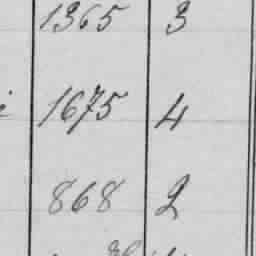 1365 3
1675 4
868 2